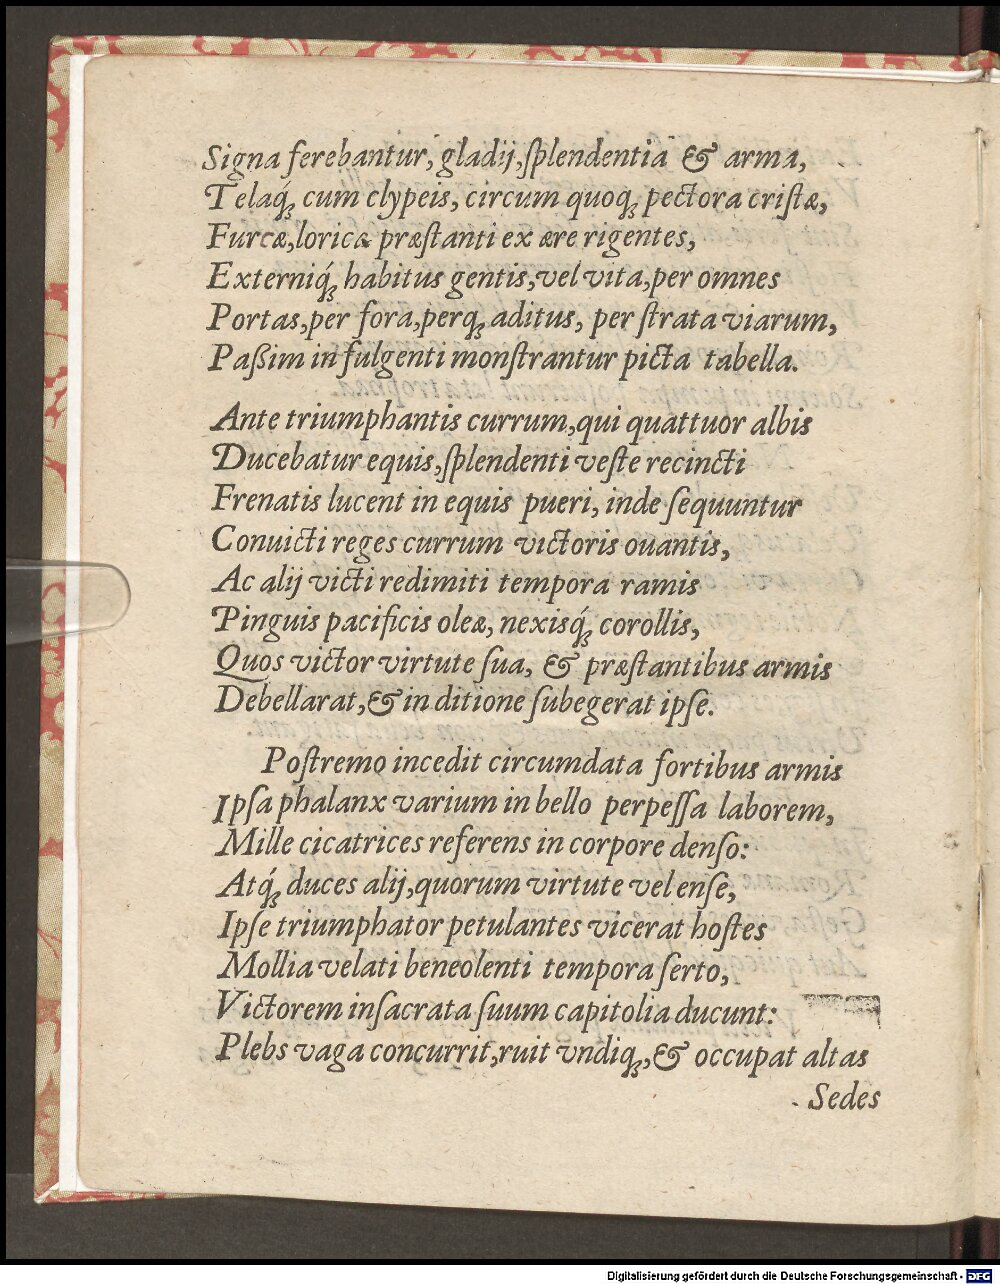 Signa ferebantur, gladij, ſplendentia & arma,
Telaq́; cum clypeis, circum quoq; pectora criſtæ,
Furcæ, loricæ præſtanti ex ære rigentes,
Externiq́; habitus gentis, vel vita, per omnes
Portas, per fora, perq; aditus, per ſtrata viarum,
Paßim in fulgenti monſtrantur picta tabella.
Ante triumphantis currum, qui quattuor albis
Ducebatur equis, ſplendenti veſte recincti
Frenatis lucent in equis pueri, inde ſequuntur
Conuicti reges currum victoris ouantis,
Ac alij victi redimiti tempora ramis
Pinguis pacificis oleæ, nexisq́; corollis,
Quos victor virtute ſua, & præſtantibus armis
Debellarat, & in ditione ſubegerat ipſe.
Poſtremo incedit circumdata fortibus armis
Ipſa phalanx varium in bello perpeſſa laborem,
Mille cicatrices referens in corpore denſo:
Atq́; duces alij, quorum virtute vel enſe,
Ipſe triumphator petulantes vicerat hoſtes
Mollia velati beneolenti tempora ſerto,
Victorem inſacrata ſuum capitolia ducunt:
Plebs vaga concurrit, ruit vndiq;, & occupat altas
Sedes
Digitalisierung gefördert durch die Deutsche Forschungsgemeinschaft - DFG